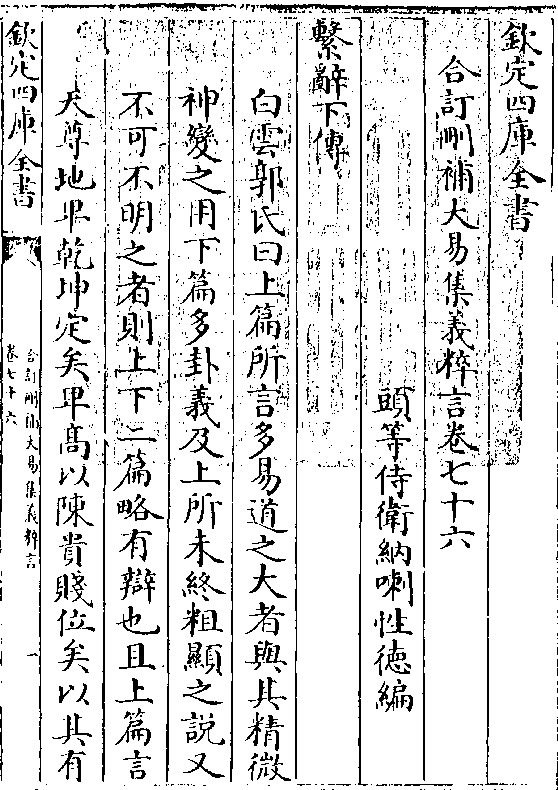 欽定四庫全書
合訂刪補大易集義粹言卷七十六
頭等侍衛納喇性德編
繫辭下傳
白雲郭氏曰上篇所言多易道之大者與其精微
神變之用下篇多卦義及上所未終粗顯之説又
不可不明之者則上下二篇略有辯也且上篇言
天尊地卑乾坤定矣卑髙以陳貴賤位矣以其有
欽定四庫全書
合訂刪補大易集義粹言
卷七十六
一